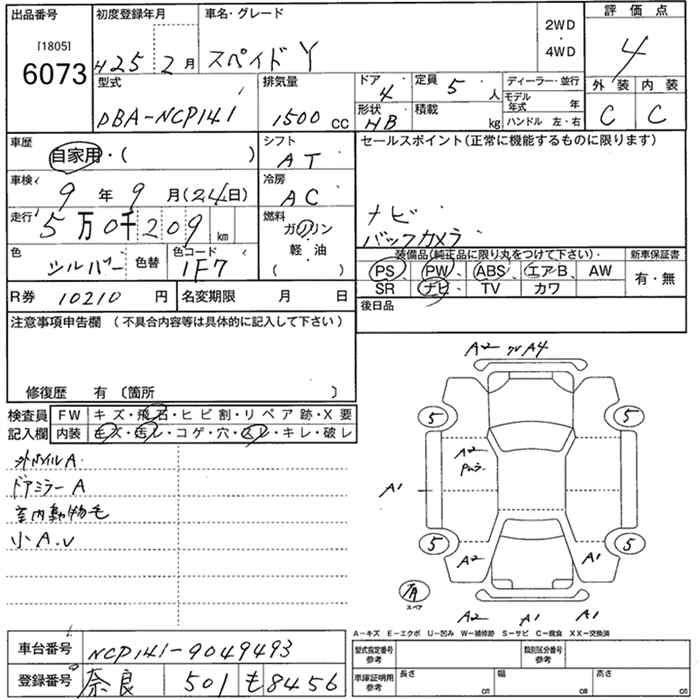 出品番号 初度登録年月 車名・グレード 2WD・4WD 評価点
[1805]
6073 H25 2月 スペイド Y 4
型式 排気量 ドア 定員 ディーラー・並行 外装 内装
4 5人 モデル年式 年
DBA-NCP141 1500 CC 形状 積載 ハンドル 左・右 C C
HB kg
車歴 シフト セールスポイント(正常に機能するものに限ります)
自家用・( ) AT
車検 冷房
9年 9月(24日) AC
走行 燃料 ナビ
5万0千209 km ガソリン バックカメラ
色 色替 色コード 軽・油 装備品(純正品に限り丸をつけて下さい) 新車保証書
シルバー 1F7 ( ) PS PW ABS エアB AW 有・無
R券 10210 円 名変期限 月 日 SR ナビ TV カワ
後日品
注意事項申告欄 (不具合内容等は具体的に記入して下さい)
修復歴 有 〔箇所 〕
検査員 FW キズ・飛石・ヒビ割・リペア跡・X要
記入欄 内装 キズ・汚レ・コゲ・穴・スレ・キレ・破レ
A2 A4
5 5
A2
A1
5 5
A2 A1
有
スペア
A2 A1 A1
A
ドアミラーA
室内動物毛
小A.U
A-キズ E-エクボ U-凹み W-補修跡 S-サビ C-腐食 XX-交換済
車台番号 NCP141-9049493 型式指定番号 参考 類別区分番号 参考
登録番号 奈良 501 も 8456 車庫証明用 参考 長さ cm 幅 cm 高さ cm